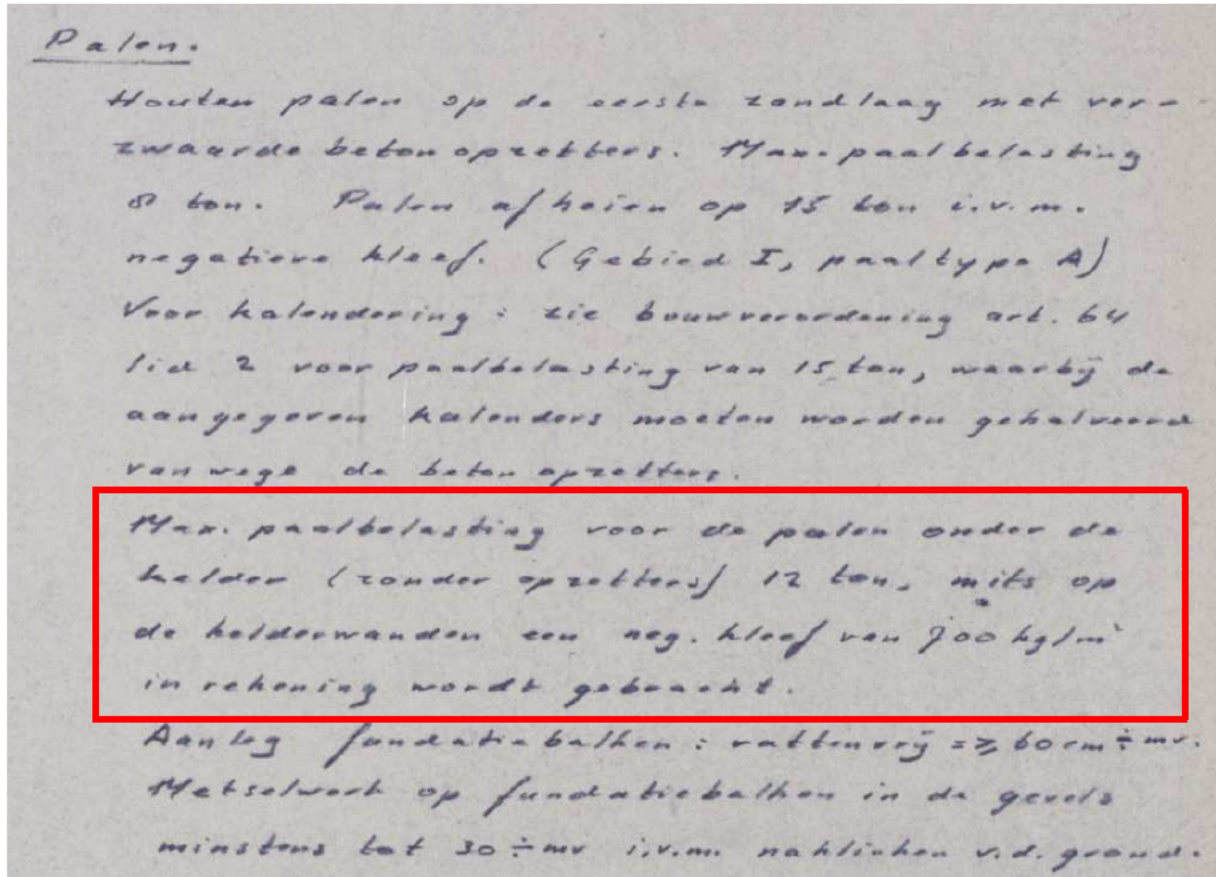 Palen.
Houten palen op de eerste zandlaag met ver-
zwaarde betonopzetters. Max. paalbelasting
8 ton. Palen afheien op 15 ton i.v.m.
negatieve kleef. (Gebied I, paaltype A)
Voor kalendering: zie bouwverordening art. 64
lid 2 voor paalbelasting van 15 ton, waarbij de
aangegeven kalenders moeten worden gehalveerd
vanwege de betonopzetters.
Max. paalbelasting voor de palen onder de
kelder (zonder opzetters) 12 ton, mits op
de kelderwanden een neg. kleef van 700 kg/m¹
in rekening wordt gebracht.
Aanleg fundatiebalken: rattenvrij => 60 cm ÷ mv.
Metselwerk op fundatiebalken in de gevels
minstens tot 30 ÷ mv i.v.m. naklinken v.d. grond.